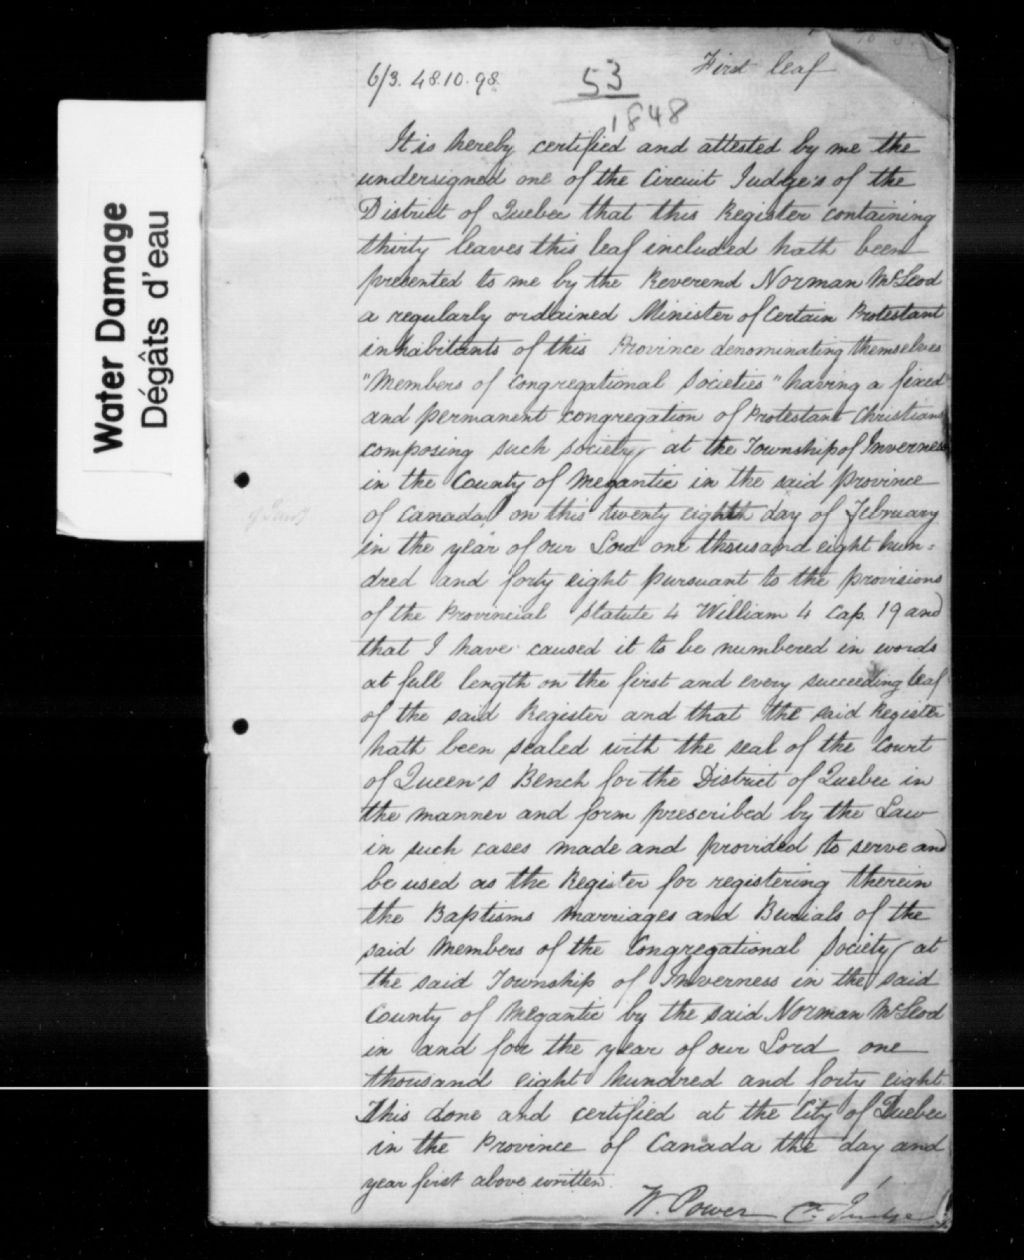 First leaf
6/3. 48.10.98
53
1848
Water Damage
Dégâts d'eau
It is hereby certified and attested by me the
undersigned one of the Circuit Judge's of the
District of Quebec that this Register containing
thirty leaves this leaf included hath been
presented to me by the Reverend Norman McLeod
a regularly ordained Minister of Certain Protestant
inhabitants of this Province denominating themselves
"Members of Congregational Societies" having a fixed
and permanent congregation of Protestant Christians
composing such society at the Township of Inverness
in the County of Megantic in the said Province
of Canada, on this twenty eighth day of February
in the year of our Lord one thousand eight hun=
dred and forty eight pursuant to the provisions
of the Provincial Statute 4 William 4 Cap. 19 and
that I have caused it to be numbered in words
at full length on the first and every succeeding leaf
of the said Register and that the said Register
hath been sealed with the seal of the Court
of Queen's Bench for the District of Quebec in
the manner and form prescribed by the Law
in such cases made and provided to serve and
be used as the Register for registering therein
the Baptisms Marriages and Burials of the
said Members of the Congregational Society at
the said Township of Inverness in the said
County of Megantic by the said Norman McLeod
in and for the year of our Lord one
thousand eight hundred and forty eight
This done and certified at the City of Quebec
in the Province of Canada the day and
year first above written.
W. Power C. Judge